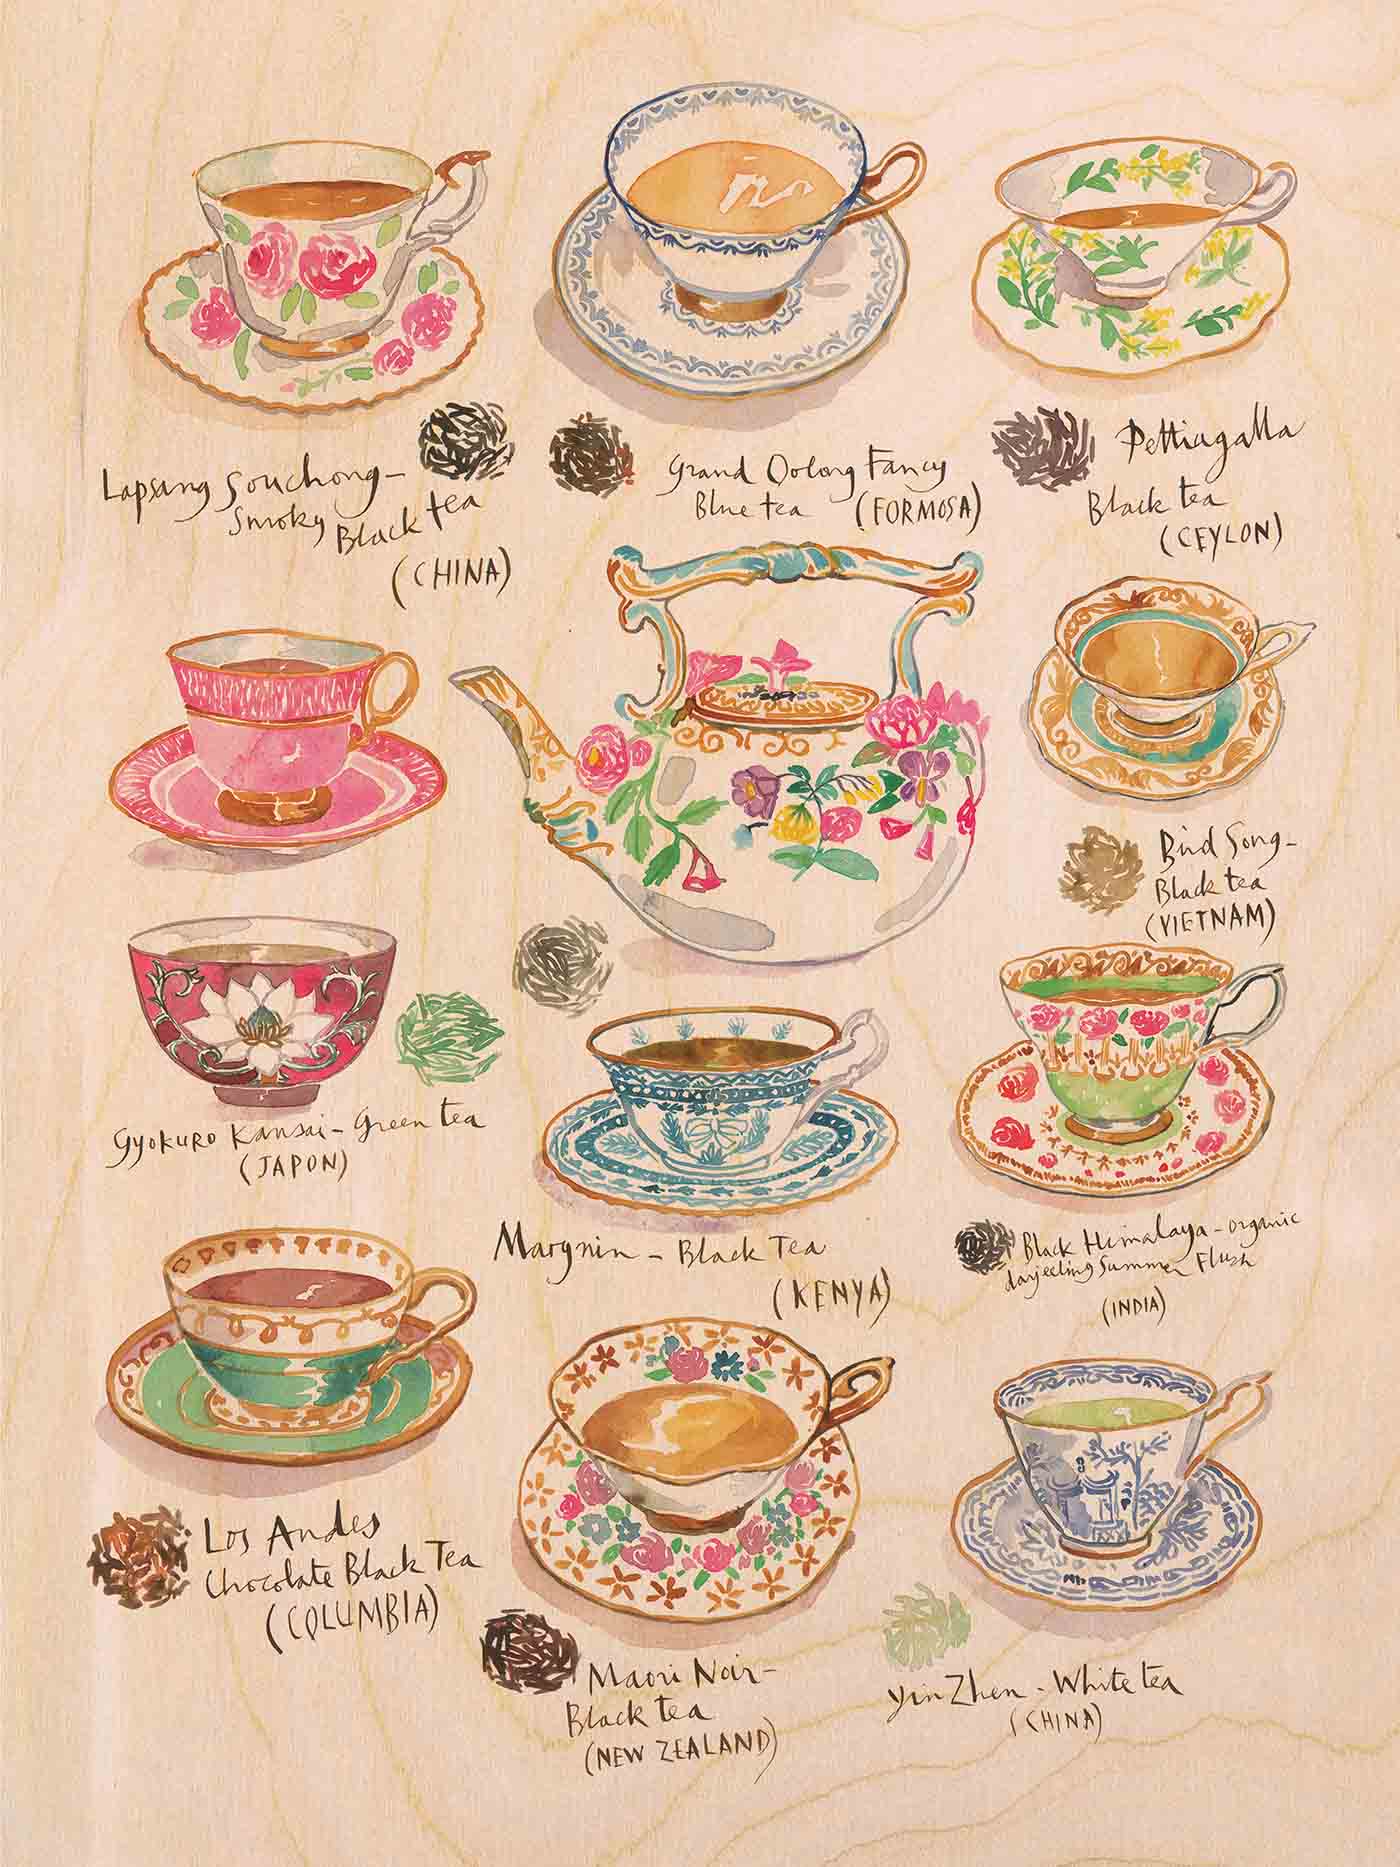 Lapsang Souchong-
Smoky Black tea
(CHINA)
Grand Oolong Fancy
Blue tea (FORMOSA)
Pettiagalla
Black tea
(CEYLON)
Bird Song-
Black tea
(VIETNAM)
Gyokuro Kansai - Green tea
(JAPON)
Marynin - Black Tea
(KENYA)
Black Himalaya - organic
darjeeling Summer Flush
(INDIA)
Los Andes
Chocolate Black Tea
(COLUMBIA)
Maori Noir-
Black tea
(NEW ZEALAND)
Yin Zhen - White tea
(CHINA)